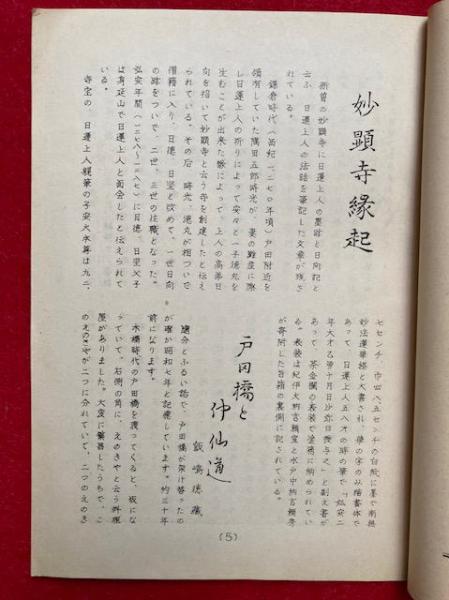 妙顕寺縁起
新曽の妙顕寺に日蓮上人の墨跡と日向記と
云ふ、日蓮上人の法話を筆記した文章が残さ
れている。
鎌倉時代(西紀一二七〇年頃)戸田附近を
領有していた隅田五郎時光が、妻の難産に際
し日蓮上人の祈りによって安々と一子徳丸を
生むことが出来た縁によって、上人の高弟日
向を招いて妙顕寺と云う寺を創建したと伝え
られている。その后 時光、徳丸が相ついで
僧籍に入り、日徳、日堅と改めて、一世日向
の跡をついで、二世、三世の住職となった。
弘安年間(一二七八~一二八七)に日徳 日堅父子
は身延山で日蓮上人と面会したと伝えられて
いる。
寺宝の、日蓮上人親筆の子安大曼荼は九二、
七センチ、巾四八、五センチの白紙に墨で南無
妙法蓮華経と大書され、華の字の以楷書体で
あって、日蓮上人五八才の時の筆で「弘安二
年大才乙卯十月日沙弥日徳与之」と副え書が
あって、茶金襴の表装で塗箱に納められてい
る。表装は紀伊大納言頼宣と水戸中納言頼房
が寄附した旨箱の裏側に記されている。
戸田橋と
仲仙道
飯嶋徳蔵
随分とふるい話で、戸田橋が架け替ったの
が確か昭和七年と記憶しています。約三十年
前になります。
木橋時代の戸田橋を渡ってくると、坂にな
っていて、右側の角に、えのきやと云う料理
屋がありました。大変に繁昌したうちで、こ
のえのきやが二つに分れていて、二つのえのき
(5)